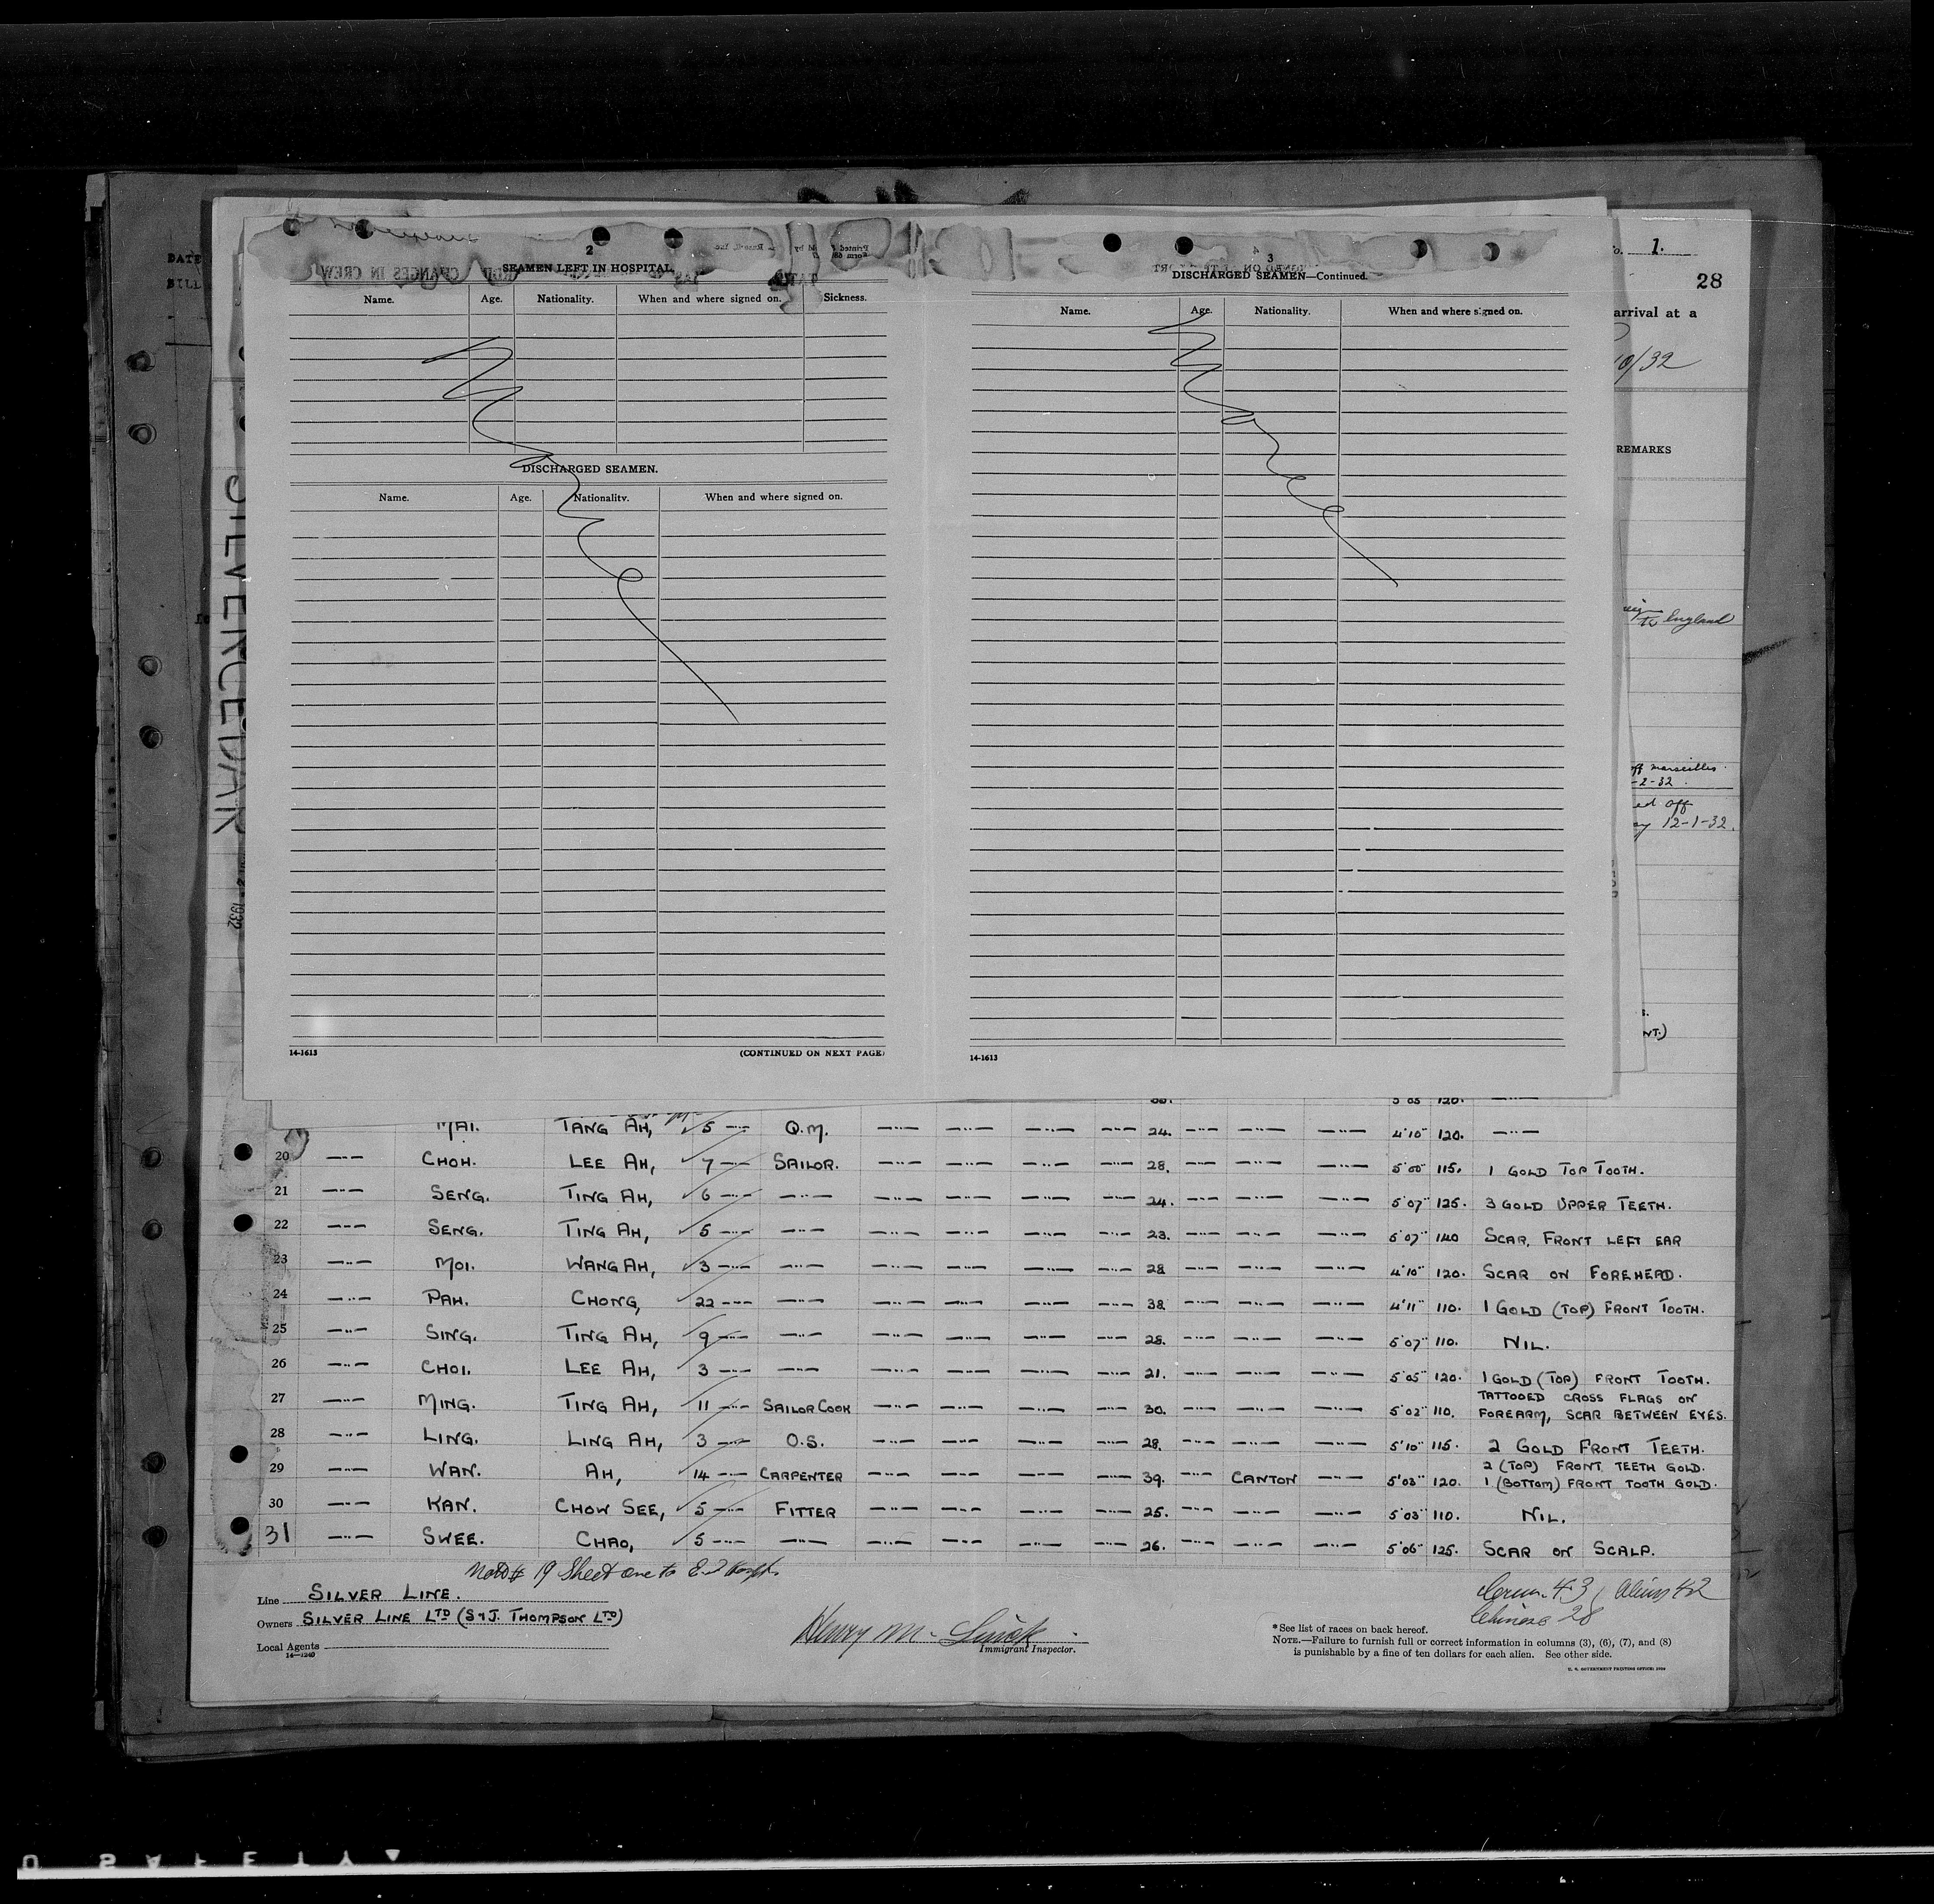 DATE
BILL
SILVERCEDAR
1932
2
SEAMEN LEFT IN HOSPITAL
Name. Age. Nationality. When and where signed on. Sickness.
DISCHARGED SEAMEN.
Name. Age. Nationality. When and where signed on.
14-1613 (CONTINUED ON NEXT PAGE)
3
DISCHARGED SEAMEN—Continued.
Name. Age. Nationality. When and where signed on.
14-1613
1.
28
arrival at a
10/32
REMARKS
to England
off Marseilles
-2-32
ed off
12-1-32.
NT.)
120. —··—
MAI. TANG AH, 5 —··— Q.M. —··— —··— —··— —··— 24. —··— —··— —··— 4'10" 120. —··—
20 —··— CHOH. LEE AH, 7 —··— SAILOR. —··— —··— —··— —··— 28. —··— —··— —··— 5'00" 115. 1 GOLD TOP TOOTH.
21 —··— SENG. TING AH, 6 —··— —··— —··— —··— —··— —··— 24. —··— —··— —··— 5'07" 125. 3 GOLD UPPER TEETH.
22 —··— SENG. TING AH, 5 —··— —··— —··— —··— —··— —··— 23. —··— —··— —··— 5'07" 140 SCAR, FRONT LEFT EAR
23 —··— MOI. WANG AH, 3 —··— —··— —··— —··— —··— —··— 28 —··— —··— —··— 4'10" 120. SCAR ON FOREHEAD.
24 —··— PAH. CHONG, 22 —··— —··— —··— —··— —··— —··— 38 —··— —··— —··— 4'11" 110. 1 GOLD (TOP) FRONT TOOTH.
25 —··— SING. TING AH, 9 —··— —··— —··— —··— —··— —··— 28. —··— —··— —··— 5'07" 110. NIL.
26 —··— CHOI. LEE AH, 3 —··— —··— —··— —··— —··— —··— 21. —··— —··— —··— 5'05" 120. 1 GOLD (TOP) FRONT TOOTH.
27 —··— MING. TING AH, 11 —··— SAILOR COOK —··— —··— —··— —··— 30. —··— —··— —··— 5'02" 110. TATTOOED CROSS FLAGS ON
FOREARM, SCAR BETWEEN EYES.
28 —··— LING. LING AH, 3 —··— O.S. —··— —··— —··— —··— 28. —··— —··— —··— 5'10" 115. 2 GOLD FRONT TEETH.
29 —··— WAN. AH, 14 —··— CARPENTER —··— —··— —··— —··— 39. —··— CANTON —··— 5'03" 120. 2 (TOP) FRONT TEETH GOLD.
1 (BOTTOM) FRONT TOOTH GOLD.
30 —··— KAN. CHOW SEE, 5 —··— FITTER —··— —··— —··— —··— 25. —··— —··— —··— 5'03" 110. NIL.
31 —··— SWEE. CHAO, 5 —··— —··— —··— —··— —··— —··— 26. —··— —··— —··— 5'06" 125. SCAR ON SCALP.
19 Sheet one to
Line SILVER LINE.
Owners SILVER LINE LTD (S & J. THOMPSON LTD)
Local Agents
14—1240
Henry M.
Immigrant Inspector.
43 Aliens 42
Chinese 28
*See list of races on back hereof.
NOTE.—Failure to furnish full or correct information in columns (3), (6), (7), and (8)
is punishable by a fine of ten dollars for each alien. See other side.
SAFETY